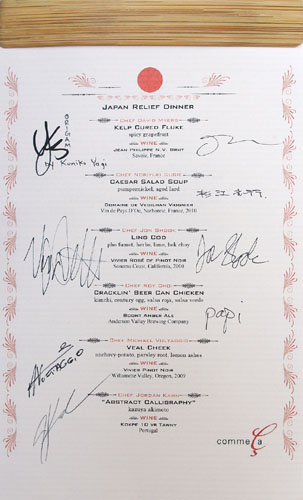 JAPAN RELIEF DINNER
CHEF DAVID MYERS
KELP CURED FLUKE
spicy grapefruit
WINE
JEAN PHILIPPE N.V. BRUT
Savoie, France
ORIGAMI
by Kuniko Yagi
CAESAR SALAD SOUP
pumpernickel, aged lard
WINE
VIN DE PAYS D'OC, Narbonne, France, 2010
CHEF JON SHOOK
LING COD
pho fumet, herbs, lime, bok choy
WINE
VIVIER ROSÉ OF PINOT NOIR
Sonoma Coast, California, 2010
Jon Shook
CHEF ROY CHOI
CRACKLIN' BEER CAN CHICKEN
kimchi, century egg, salsa roja, salsa verde
WINE
BOONT AMBER ALE
Anderson Valley Brewing Company
papi
CHEF MICHAEL VOLTAGGIO
VEAL CHEEK
anchovy-potato, parsley root, lemon ashes
WINE
VIVIER PINOT NOIR
Willamette Valley, Oregon, 2009
CHEF JORDAN KAHN
"ABSTRACT CALLIGRAPHY"
kazuya akimoto
WINE
KOKPE 10 YR TAWNY
Portugal
comme Ça